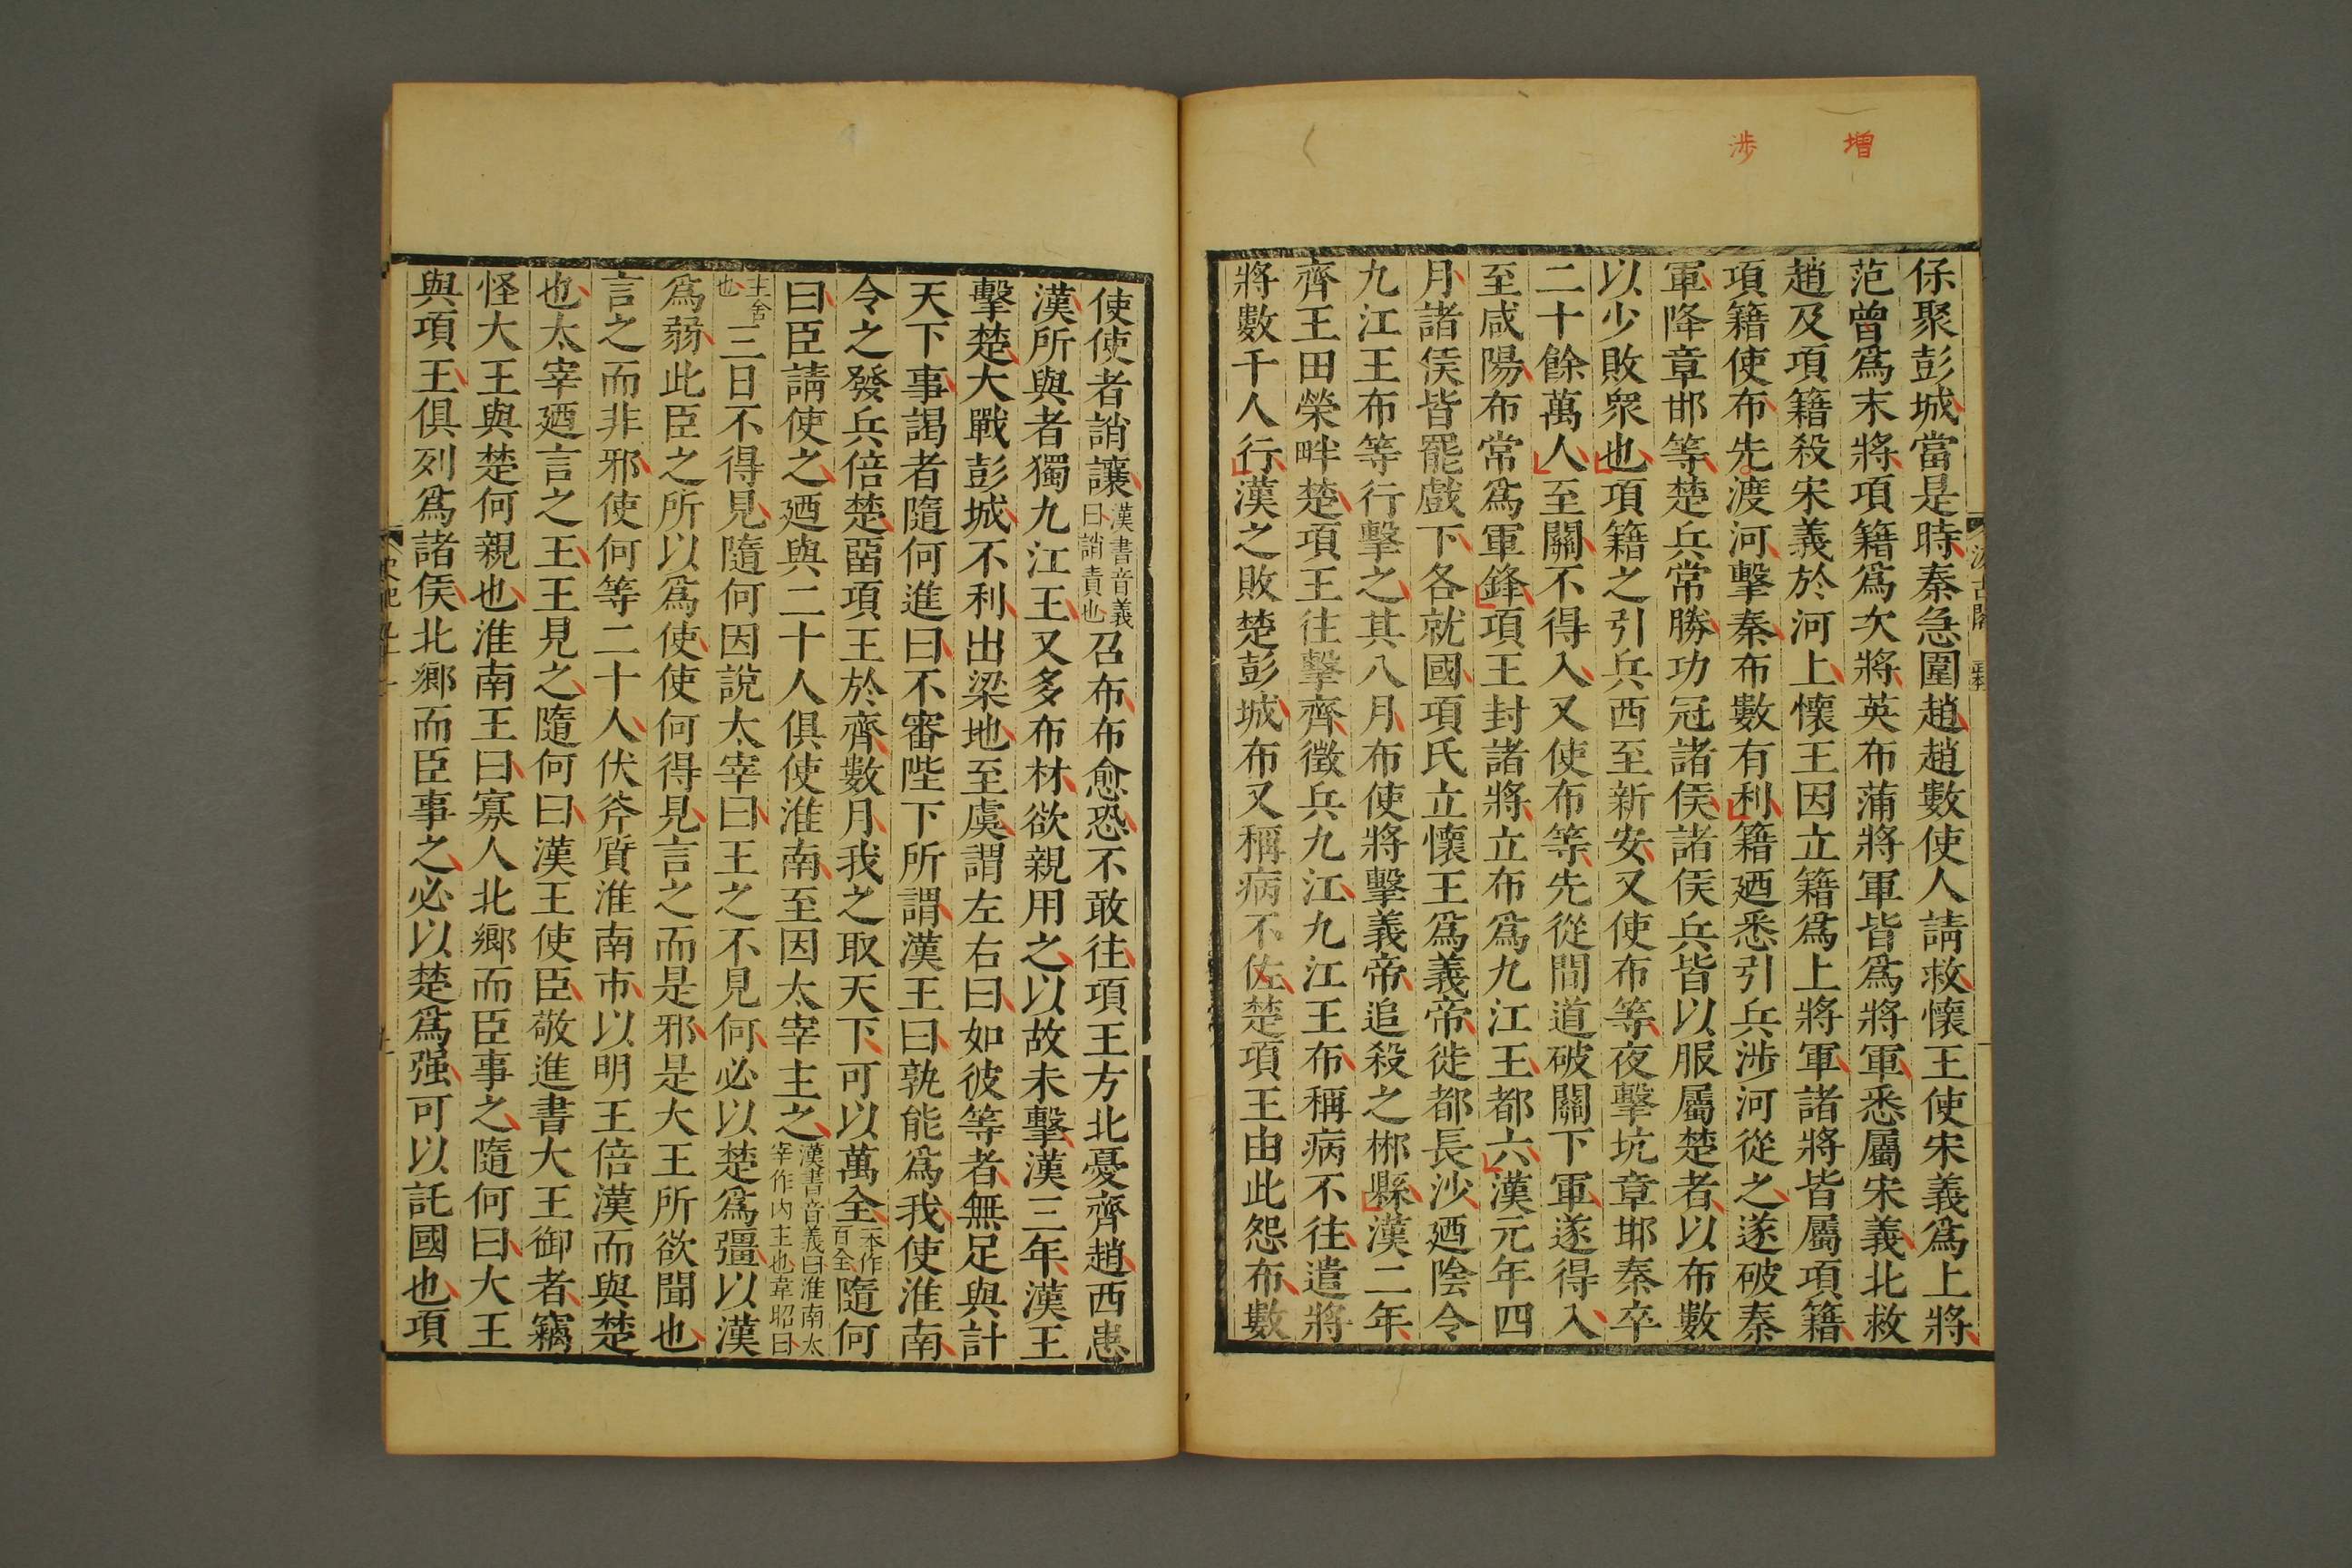 增
涉
保聚彭城當是時秦急圍趙趙數使人請救懷王使宋義爲上將
范曾爲末將項籍爲次將英布蒲將軍皆爲將軍悉屬宋義北救
趙及項籍殺宋義於河上懷王因立籍爲上將軍諸將皆屬項籍
項籍使布先渡河擊秦布數有利籍廼悉引兵涉河從之遂破秦
軍降章邯等楚兵常勝功冠諸侯諸侯兵皆以服屬楚者以布數
以少敗衆也項籍之引兵西至新安又使布等夜擊坑章邯秦卒
二十餘萬人至關不得入又使布等先從間道破關下軍遂得入
至咸陽布常爲軍鋒項王封諸將立布爲九江王都六漢元年四
月諸侯皆罷戲下各就國項氏立懷王爲義帝徙都長沙廼陰令
九江王布等行擊之其八月布使將擊義帝追殺之郴縣漢二年
齊王田榮畔楚項王往擊齊徵兵九江九江王布稱病不往遣將
將數千人行漢之敗楚彭城布又稱病不佐楚項王由此怨布數
使使者誚讓漢書音義曰誚責也召布布愈恐不敢往項王方北憂齊趙西患
漢所與者獨九江王又多布材欲親用之以故未擊漢三年漢王
擊楚大戰彭城不利出梁地至虞謂左右曰如彼等者無足與計
天下事謁者隨何進曰不審陛下所謂漢王曰孰能爲我使淮南
令之發兵倍楚畱項王於齊數月我之取天下可以萬全一本作百全隨何
曰臣請使之廼與二十人俱使淮南至因太宰主之漢書音義曰淮南太宰作內主也韋昭曰
主舍也三日不得見隨何因說太宰曰王之不見何必以楚爲彊以漢
爲弱此臣之所以爲使使何得見言之而是邪是大王所欲聞也
言之而非邪使何等二十人伏斧質淮南市以明王倍漢而與楚
也太宰廼言之王王見之隨何曰漢王使臣敬進書大王御者竊
怪大王與楚何親也淮南王曰寡人北鄉而臣事之隨何曰大王
與項王俱列爲諸侯北鄉而臣事之必以楚爲强可以託國也項